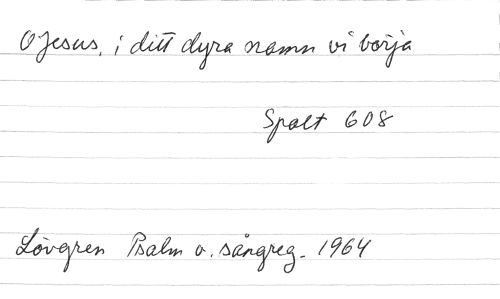 O Jesus, i ditt dyra namn vi börja
Spalt 608
Lövgren Psalm o. sångreg. 1964